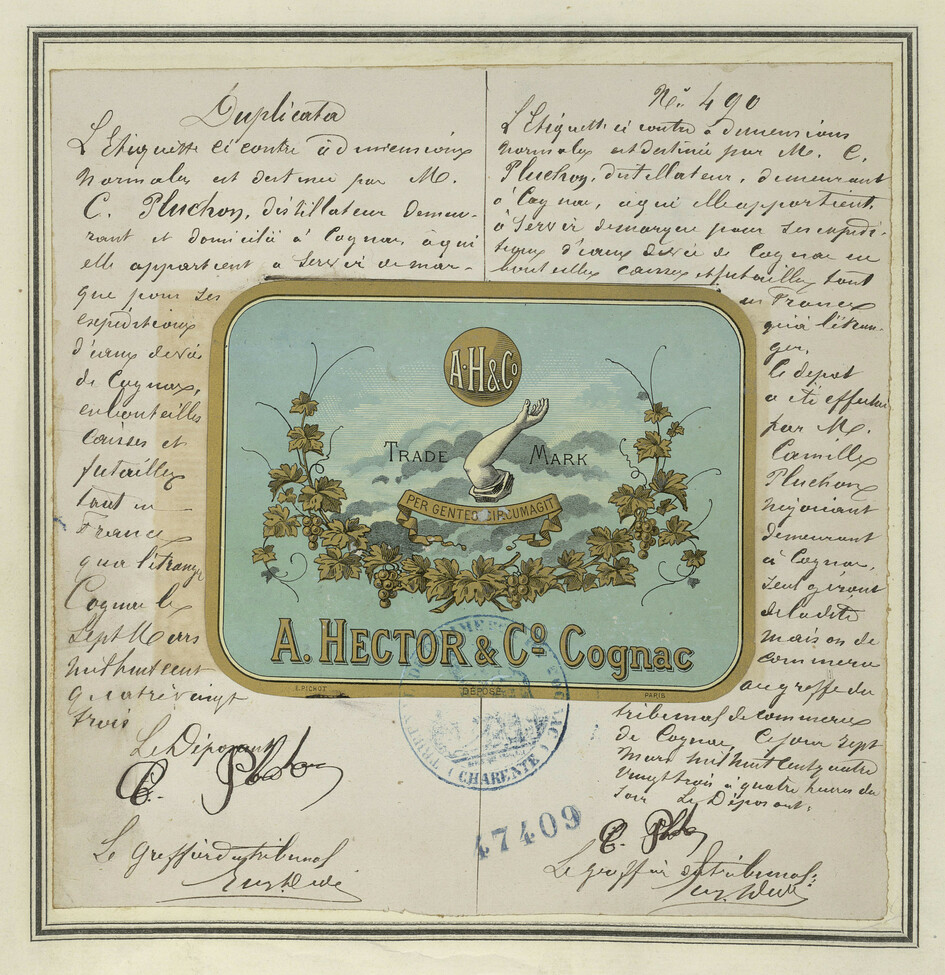 Duplicata
L'Etiquette ci contre à dimensions
normales est destinée par M.
C. Pluchon, distillateur demeu-
rant et domicilié à Cognac, à qui
elle appartient à servir de mar-
que pour ses
expéditions
d'eaux de vie
de Cognac,
en bouteilles
caisses et
futailles
tant en
France
qu'à l'étranger
Cognac le
Sept Mars
mil huit cent
quatre vingt
trois
Le Déposant
C. Pluchon
Le Greffier du tribunal
No. 490
L'Etiquette ci contre à dimensions
normales est destinée par M. C.
Pluchon, distillateur, demeurant
à Cognac, à qui elle appartient,
à servir de marque pour ses expédi-
tions d'eaux de vie de Cognac en
bouteilles caisses et futailles tant
en France
qu'à l'étran-
ger.
Le dépot
a été effectué
par M.
Camille
Pluchon
négociant
demeurant
à Cognac,
seul gérant
de la dite
maison de
commerce
au greffe du
tribunal de commerce
de Cognac, ce jour sept
Mars mil huit cent quatre
vingt trois à quatre heures du
soir Le Déposant,
C. Pluchon
Le greffier du tribunal
A.H&Co
TRADE MARK
PER GENTES CIRCUMAGIT
A. HECTOR & Co COGNAC
E. PICHOT DÉPOSÉ PARIS
(CHARENTE)
47409